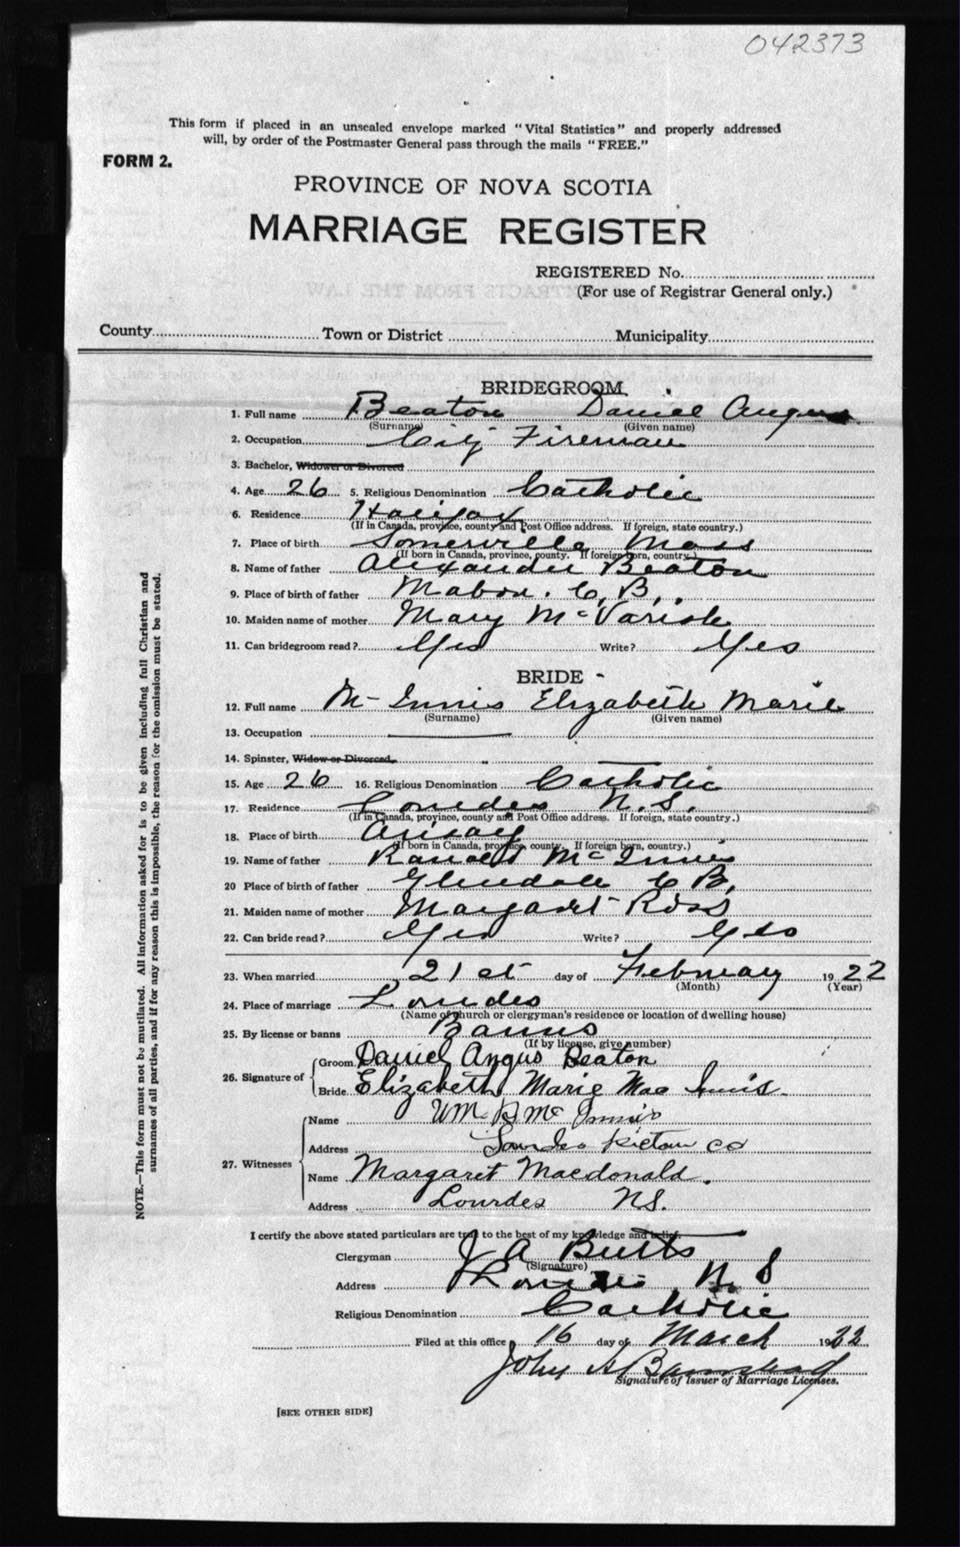 042373
This form if placed in an unsealed envelope marked "Vital Statistics" and properly addressed
will, by order of the Postmaster General pass through the mails "FREE."
FORM 2.
PROVINCE OF NOVA SCOTIA
MARRIAGE REGISTER
REGISTERED No.
(For use of Registrar General only.)
County Town or District Municipality
BRIDEGROOM.
1. Full name Beaton Daniel Angus
(Surname) (Given name)
2. Occupation City Fireman
3. Bachelor, Widower or Divorced
4. Age 26 5. Religious Denomination Catholic
6. Residence Halifax
(If in Canada, province, county and Post Office address. If foreign, state country.)
7. Place of birth Somerville Mass
(If born in Canada, province, county. If foreign born, country.)
8. Name of father Alexander Beaton
9. Place of birth of father Mabou. C. B.
10. Maiden name of mother Mary McVarish
11. Can bridegroom read? Yes Write? Yes
BRIDE
12. Full name McInnis Elizabeth Marie
(Surname) (Given name)
13. Occupation
14. Spinster, Widow or Divorced,
15. Age 26 16. Religious Denomination Catholic
17. Residence Lourdes N.S.
(If in Canada, province, county and Post Office address. If foreign, state country.)
18. Place of birth Arisaig
(If born in Canada, province, county. If foreign born, country.)
19. Name of father Ranald McInnis
20 Place of birth of father Glendale C B.
21. Maiden name of mother Margaret Ross
22. Can bride read? Yes Write? Yes
23. When married 21st day of February 1922
(Month) (Year)
24. Place of marriage Lourdes
(Name of church or clergyman's residence or location of dwelling house)
25. By license or banns Banns
(If by license, give number)
26. Signature of Groom Daniel Angus Beaton
Bride Elizabeth Marie Mac Innis.
27. Witnesses Name Wm McInnis
Address Lourdes Pictou Co
Name Margaret Macdonald.
Address Lourdes NS.
I certify the above stated particulars are true to the best of my knowledge and belief.
Clergyman J A Butts
(Signature)
Address Lourdes N. S
Religious Denomination Catholic
Filed at this office 16 day of March 1922
John H Barnstead
Signature of Issuer of Marriage Licenses.
[SEE OTHER SIDE]
NOTE.—This form must not be mutilated. All information asked for is to be given including full Christian and
surnames of all parties, and if for any reason this is impossible, the reason for the omission must be stated.